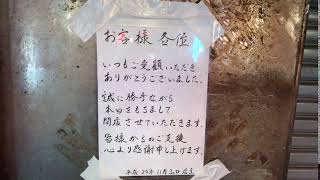 お客様 各位
いつもご愛顧いただき
ありがとうございました。
誠に勝手ながら
本日をもちまして
閉店させていただきます。
皆様からのご支援
心より感謝申し上げます。
平成29年11月30日 店主